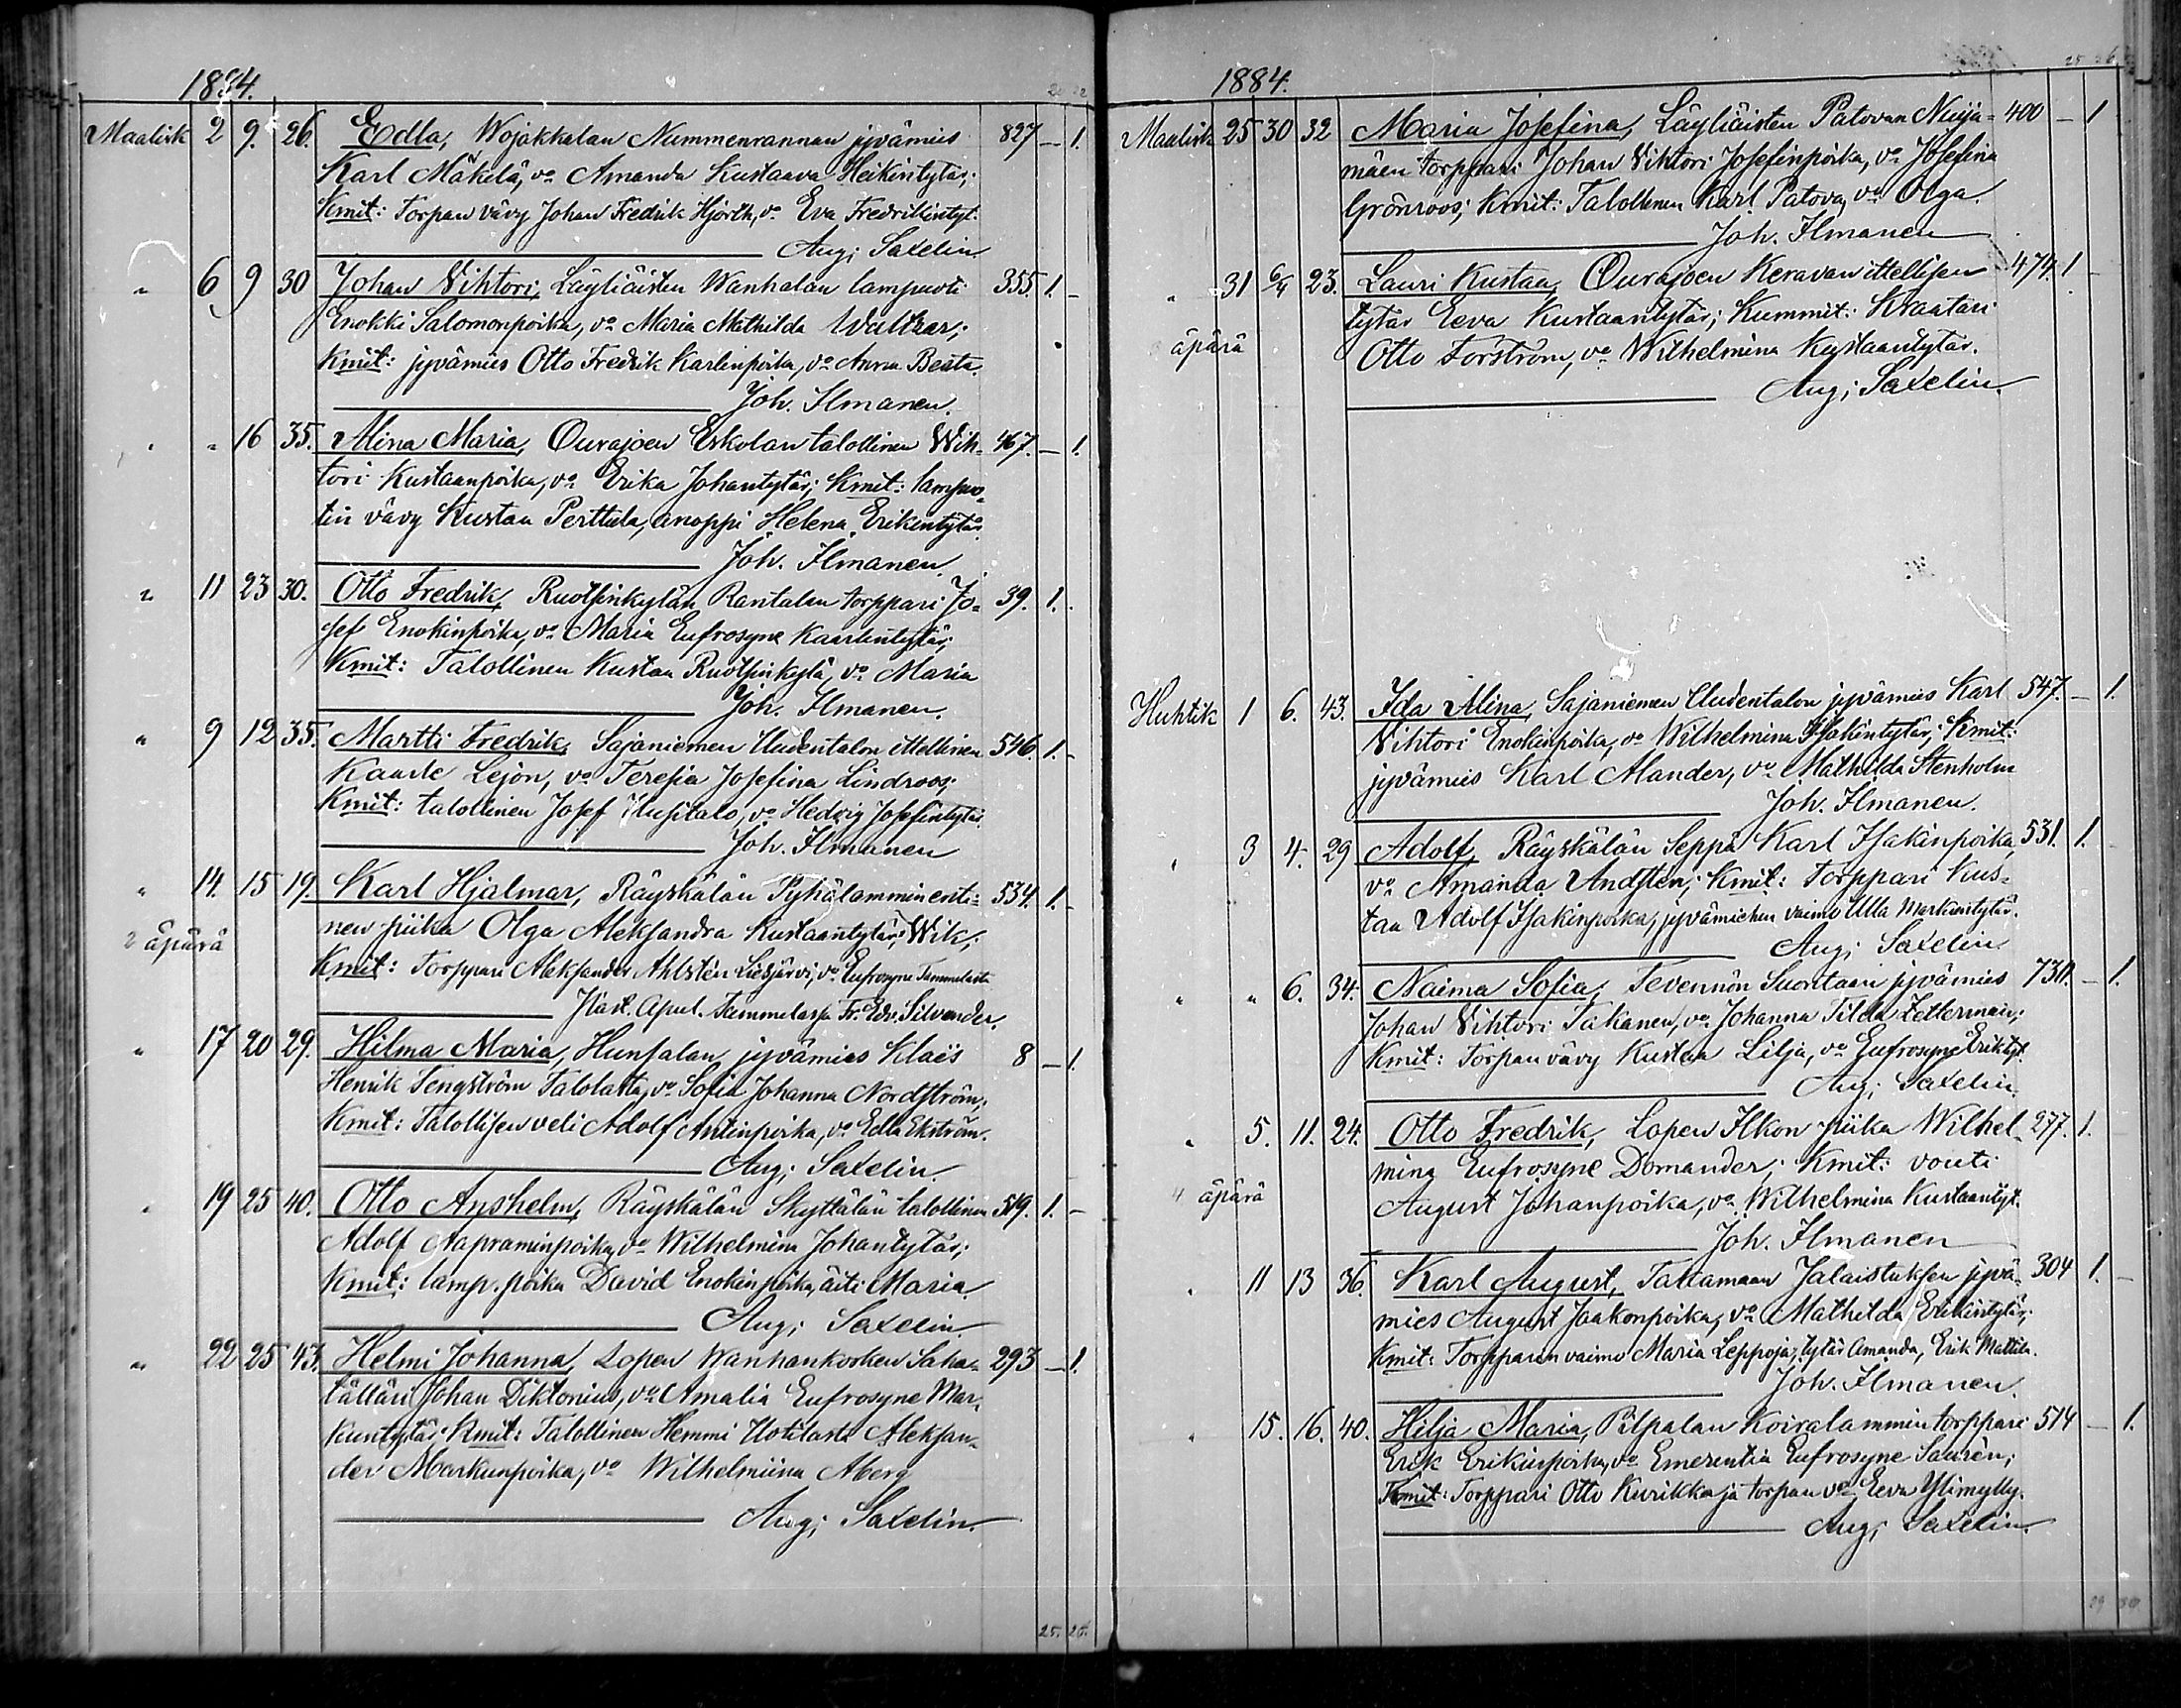 1884.
Maalisk 2 9. 26. Edla, Wojakkalan Nummenrannan jyvämies 827 — 1.
Karl Mäkelä, vo Amanda Kustaava Heikintytär;
Kmit: Torpan vävy Johan Fredrik Hjorth, vo Eva Fredrikintyt.
Aug; Saxelin
" 6 9 30 Johan Vihtori, Läyliäisten Wanhalan lampuoti 355. 1. –
Enokki Salomonpoika, vo Maria Mathilda
Kmit: jyvämies Otto Fredrik Karlinpoika, vo Anna Beata.
Joh. Ilmanen.
" " 16 35. Alina Maria, Ourajoen Eskolan talollinen Wih- 467. — 1.
tori Kustaanpoika, vo Erika Johantytär; Kmit: lampuo-
tin vävy Kustaa Perttula, anoppi Helena Erikintytär.
Joh. Ilmanen.
" 11 23 30. Otto Fredrik, Ruotsinkylän Rantalan torppari Jo- 39. 1.
sef Enokinpoika, vo Maria Eufrosyne Kaarlentytär;
Kmit: Talollinen Kustaa Ruotsinkylä, vo Maria
Joh. Ilmanen.
" 9 12 35. Martti Fredrik, Sajaniemen Uudentalon ittellinen 546. 1. –
Kaarle Lejon, vo Teresia Josefina Lindroos;
Kmit: talollinen Josef Uusitalo, vo Hedvig Josefintytär.
Joh. Ilmanen
" 14. 15 19. Karl Hjalmar, Räyskälän Pyhälammin enti- 534. 1. –
2 äpärä
nen piika Olga Aleksandra Kustaantytär Wik;
Kmit: Torppari Aleksander Ahlstén Liesjärvi, vo Eufrosyne Tammelasta
Past. Apul. Tammelassa Fr. Edv. Silvander.
" 17 20 29. Hilma Maria, Hunsalan jyvämies Klaës 8 — 1.
Henrik Tengström Talolatta, vo Sofia Johanna Nordström;
Kmit: Talollisen veli Adolf Antinpoika, vo Edla Ekström.
Aug; Saxelin.
" 19 25 40. Otto Anshelm, Räyskälän Skyttälän talollinen 519. 1. –
Adolf Aapraminpoika, vo Wilhelmina Johantytär;
Kmit: lamp. poika David Enokinpoika, äiti Maria.
Aug; Saxelin.
" 22 25 43. Helmi Johanna, Lopen Wanhankosken Saha- 293 — 1.
tälläri Johan Diktonius, vo Amalia Eufrosyne Mar-
kuntytär; Kmit: Talollinen Hemmi Uotilasta Aleksan-
der Markunpoika, vo Wilhelmiina Åberg
Aug; Saxelin.
25. 25.
1884.
Maalisk 25 30 32 Maria Josefina, Läyliäisten Patovan Nuija- 400 — 1
mäen torppari Johan Vihtori Josefinpoika, vo Josefina
Grönroos; Kmit: Talollinen Karl Patova, vo Olga.
Joh. Ilmanen
" 31 6/4 23. Lauri Kustaa, Ourajoen Keravan ittellisen 474. 1 –
tytär Eeva Kustaantytär; Kummit: Kraatari
äpärä
Otto Forström, vo Wilhelmina Kustaantytär.
Aug; Saxelin.
Huhtik 1 6. 43. Ida Alina, Sajaniemen Uudentalon jyvämies Karl 547. — 1.
Vihtori Enokinpoika, vo Wilhelmina Isakintytär; Kmit:
jyvämies Karl Alander, vo Mathilda Stenholm
Joh. Ilmanen.
" 3 4. 29 Adolf, Räyskälän Seppä Karl Isakinpoika, 531. 1.
vo Amanda Andsten; Kmit: Torppari Kus-
taa Adolf Isakinpoika, jyvämiehen vaimo Ulla Markuntytär.
Aug; Saxelin
" " 6. 34. Naima Sofia, Tevennön Suontaan jyvämies — 1.
Johan Vihtori Takanen, vo Johanna Tilda Zetterman;
Kmit: Torpan vävy Kustaa Lilja, vo Eufrosyne Eriktyt.
Aug; Saxelin.
" 5. 11. 24. Otto Fredrik, Lopen Ilkon piika Wilhel- 277. 1.
mina Eufrosyne Domander; Kmit: vouti
4 äpärä
August Johanpoika, vo Wilhelmina Kustaantyt.
Joh. Ilmanen
" 11 13 36. Karl August, Tartamaan Jalaistuksen jyvä- 304 1. –
mies August Jaakonpoika, vo Mathilda Erikintytär;
Kmit: Torpparin vaimo Maria Leppoja, tytär Amanda, Erik Mattila.
Joh. Ilmanen.
" 15. 16. 40. Hilja Maria, Pilpalan Koiralammin torppari 514 — 1.
Erik Erikinpoika, vo Emerentia Eufrosyne Saurén;
Kmit: Torppari Otto Kurikka ja torpan vo Eeva Ylimylly.
Aug; Saxelin.
29 30